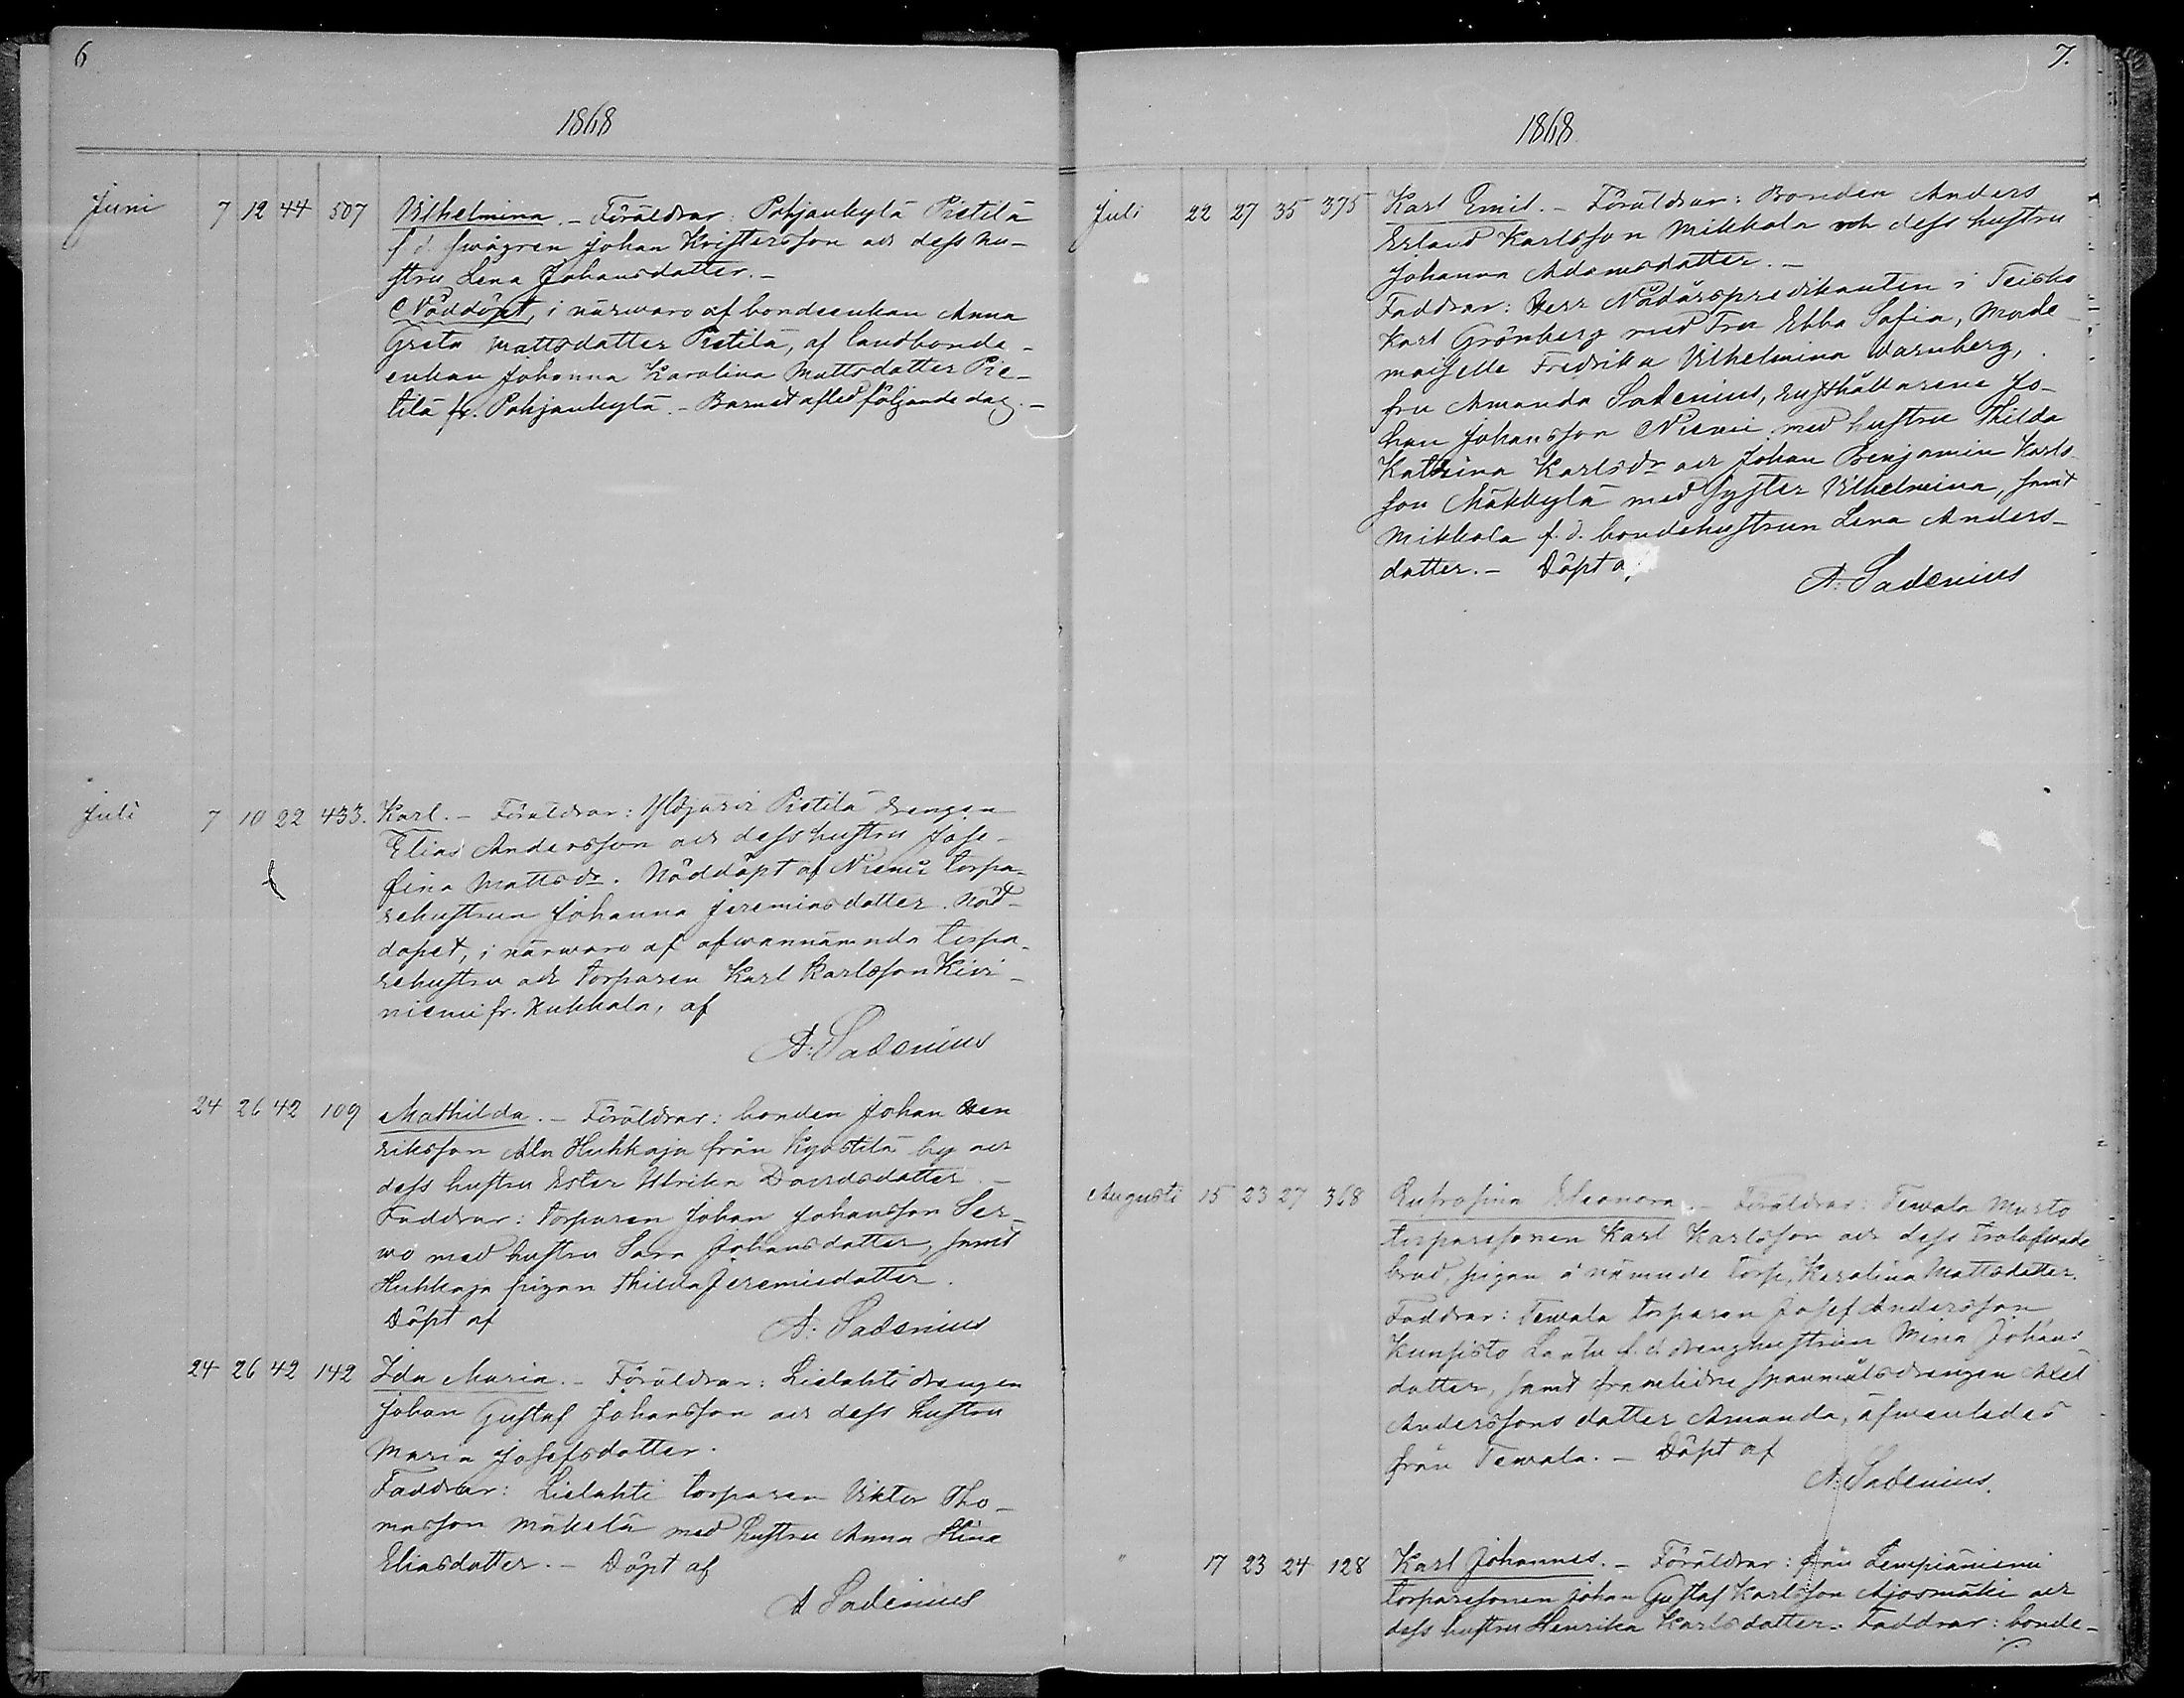 6
1868
Juni 7 12 44 507 Vilhelmina. – Föräldrar: Pohjankylä Pietilä
f. d. swågren Johan Kristersson och dess hu-
stru Lena Johansdatter. –
Nöddöpt, i närwaro af bondeenkan Anna
Greta Mattsdatter Pietilä, af landbonde-
enkan Johanna Karolina Mattsdatter Pie-
tilä fr. Pohjankylä. – Barnet afled följande dag. –
Juli 7 10 22 433. Karl. – Föräldrar: Ylöjärvi Pietilä drengen
Elias Andersson och dess hustru Jose-
fina Mattsdr. Nöddöpt af Niemi torpa-
rehustrun Johanna Jeremiasdatter. Nöd-
döpet, i närwaro af ofwannämnda torpa-
rehustru och torparen Karl Karlsson Kivi-
niemi fr. Kukkola, af
A. Sadenius
24 26 42 109 Mathilda. – Föräldrar: bonden Johan Hen
riksson Ala Huhkaja från Kyöstilä by och
dess hustru Ester Ulrika Davidsdatter. –
Faddrar: torparen Johan Johansson Ser-
wo med hustru Sara Johansdatter, samt
Huhkaja pigan Thilda Jeremiedatter.
Döpt af
A. Sadenius
24 26 42 142 Ida Maria. – Föräldrar: Lielahti drengen
Johan Gustaf Johansson och dess hustru
Maria Josefsdatter.
Faddrar: Lielahti torparen Viktor Tho-
masson Mäkelä med hustru Anna Stina
Eliasdatter. – Döpt af
A Sadenius
7.
1868
Juli 22 27 35 375 Karl Emil. – Föräldrar: Bonden Anders
Erland Karlsson Mikkola och dess hustru
Johanna Adamsdatter. –
Faddrar: Herr Nådårspredikanten i Teisko
Karl Grönberg med Fru Ebba Sofia, Made-
moiselle Fredrika Vilhelmina Warnberg,
fru Amanda Sadenius, rusthållarene Jo-
han Johansson Niemi med hustru Thilda
Katrina Karlsdr och Johan Benjamin Karls-
son Mäkkylä med syster Vilhelmina, samt
Mikkola f. d. bondehustrun Lena Anders-
datter. – Döpt a
A. Sadenius
Augusti 15 23 27 368 Eufrosina Eleonora. – Föräldrar: Tewala Musto
torparesonen Karl Karlsson och dess trolofwade
brud, pigan å nämnde torp, Karolina Mattsdatter.
Faddrar: Tewala torparen Josef Andersson
Kunsisto Lantu f. d. drenghustrun Mina Johans
datter, samt framlidne spanmålsdrengen Axel
Anderssons datter Amanda, äfwenledes
från Tewala. – Döpt af
A. Sadenius.
" 17 23 24 128 Karl Johannes. – Föräldrar: från Lempiäniemi
torparesonen Johan Gustaf Karlsson Ajosmäki och
dess hustru Henrika Karlsdatter. Faddrar: bonde-